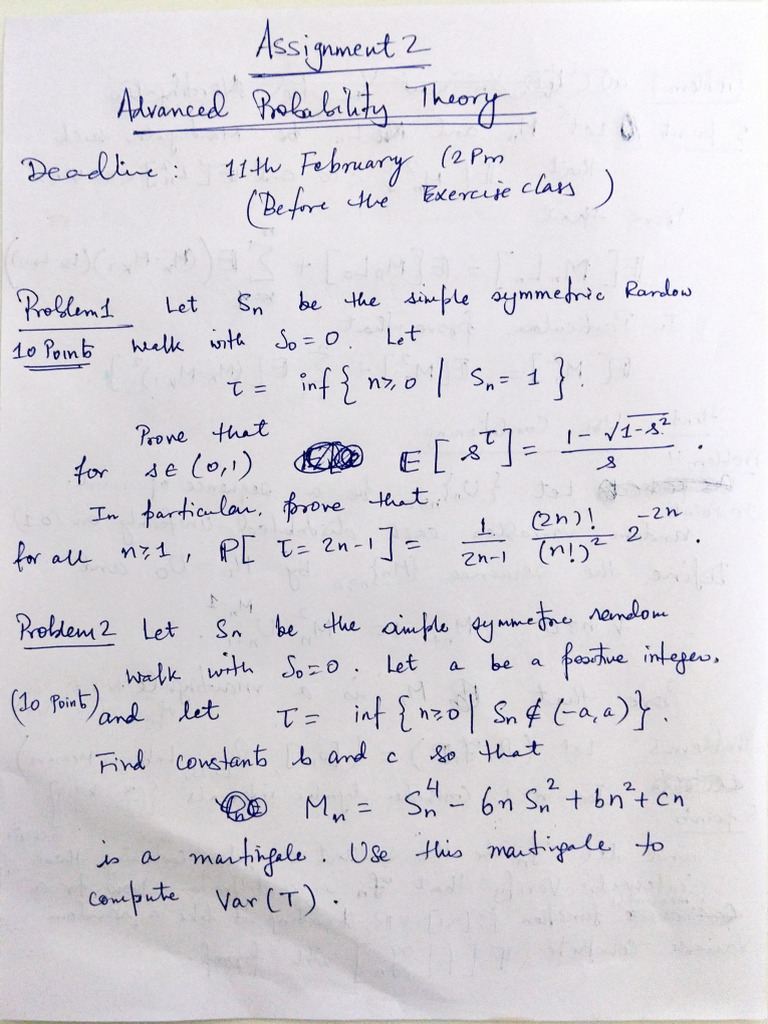 Assignment 2
Advanced Probability Theory
Deadline: 11th February 12Pm
(Before the Exercise class)
Problem1 Let Sn be the simple symmetric Random
10 Points walk with S0 = 0. Let
τ = inf { n ≥ 0 | Sn = 1 }.
Prove that
for s ∈ (0,1) E[ s^τ ] = (1 - √(1-s²)) / s .
In particular, prove that.
for all n ≥ 1, P[ τ = 2n-1 ] = 1/(2n-1) (2n)!/(n!)² 2^(-2n) .
Problem2 Let Sn be the simple symmetric random
walk with S0 = 0. Let a be a positive integer,
(10 Point) and let τ = inf { n ≥ 0 | Sn ∉ (-a, a) }.
Find constants b and c so that
Mn = Sn⁴ - 6n Sn² + bn² + cn
is a martingale. Use this martingale to
compute Var(τ).